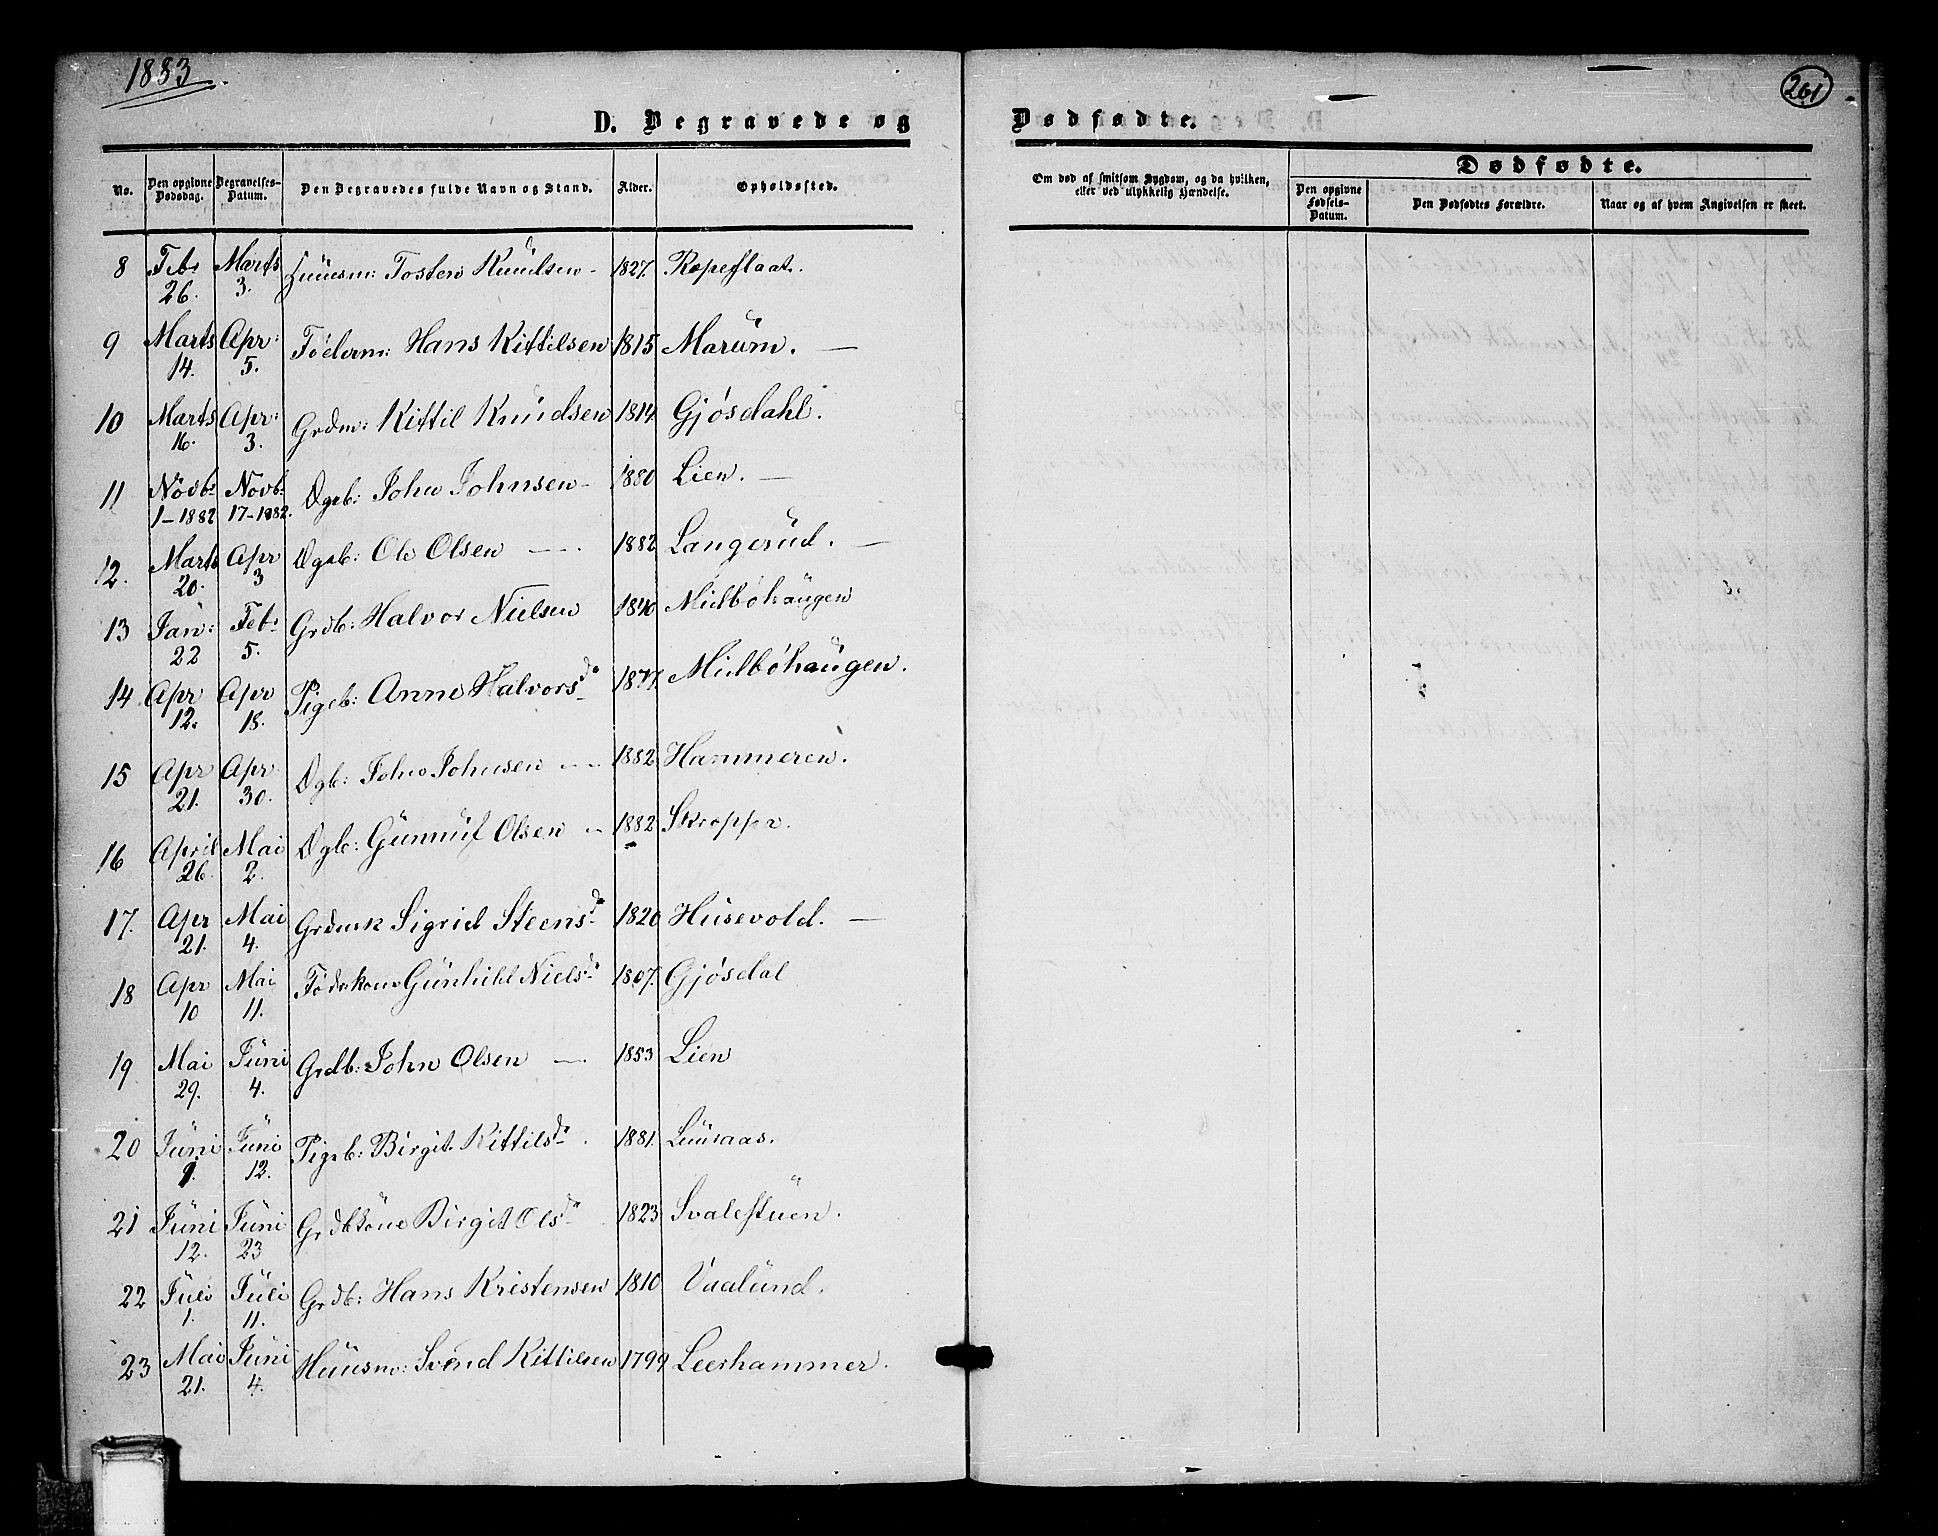 1883.
261
D. Begravede og Dødfødte.
No. Den opgivne Dødsdag. Begravelses-Datum. Den Begravedes fulde Navn og Stand. Alder. Opholdssted.
Om død af smitsom Sygdom, og da hvilken, eller ved ulykkelig Hændelse.
Dødfødte.
Den opgivne Fødsels-Datum. Den Dødfødtes Forældre. Naar og af hvem Angivelsen er skeet.
8 Feb: 26. Marts 3. Huusm: Tosten Knudsen - 1827. Ropeflaat.
9 Marts 14. Apr: 5. Föderm: Hans Kittilsen 1815 Marum. —
10 Marts 16. Apr: 3. Grdm: Kittil Knudsen 1814. Gjösdahl.
11 Novb: 1-1882 Novb: 17-1882. Dgeb: John Johnsen - 1880 Lien. —
12. Marts 20. Apr 3 Dgeb: Ole Olsen — 1882 Langerud. —
13 Jan: 22 Feb: 5. Grdb: Halvor Nielsen 1840 Midböhaugen
14 Apr 12. Apr 18. Pigeb: Anne Halvorsd: 1877. Midböhaugen.
15 Apr 21. Apr 30. Dgb: John Johnsen — 1882 Hammeren.
16 April 26. Mai 2. Dgb: Gunnuf Olsen - 1882 Skropper.
17. Apr 21. Mai 4. Sigrid Steensd: 1820 Husevold. —
18 Apr 10 Mai 11. Gunhild Nielsd: 1807. Gjösdal
19 Mai 29. Juni 4. Grdb: John Olsen — 1853 Lien
20 Juni 9. Juni 12. Pigeb: Birgit Kittilsd: 1881. Luuraas.
21 Juni 12. Juni 23 Birgit Olsd: 1823 Svalestuen.
22 Juli 1. Juli 11. Grdb: Hans Kristensen 1810 Vaalund.
23 Mai 21. Juni 4. Huusm: Svend Kittilsen 1799 Leerhammer.